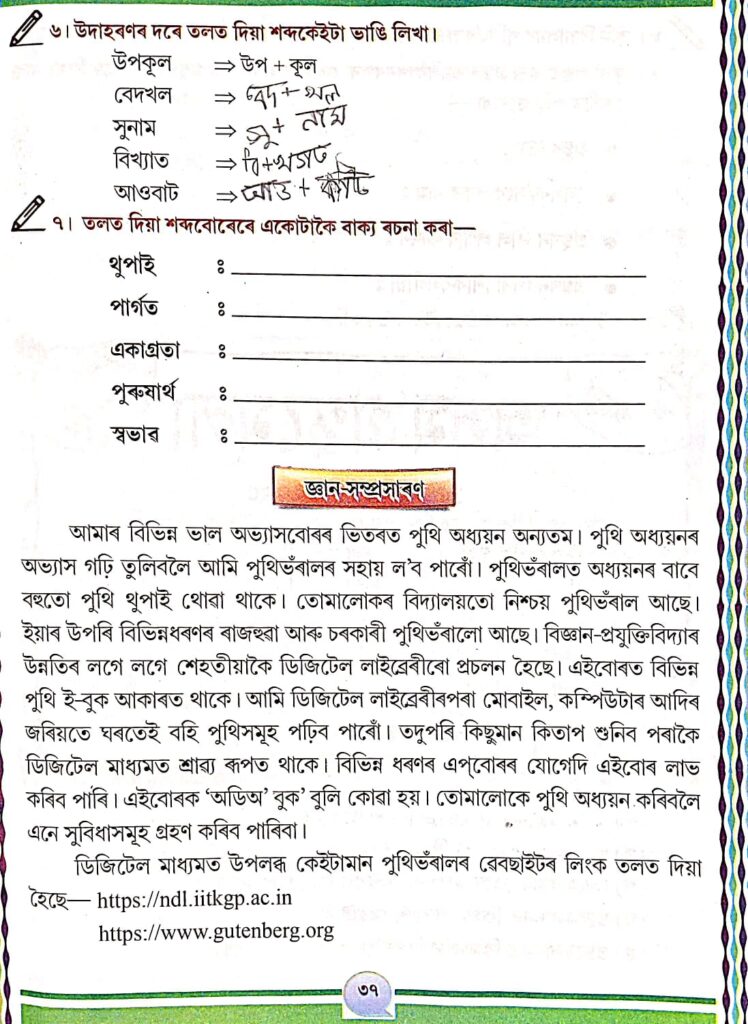 ৬। উদাহৰণৰ দৰে তলত দিয়া শব্দকেইটা ভাঙি লিখা।
উপকূল ⇒ উপ + কূল
বেদখল ⇒ বেদ + খল
সুনাম ⇒ সু + নাম
বিখ্যাত ⇒ বি +
আওবাট ⇒ আও +
৭। তলত দিয়া শব্দবোৰেৰে একোটাকৈ বাক্য ৰচনা কৰা—
থুপাই ঃ
পাৰ্গত ঃ
একাগ্ৰতা ঃ
পুৰুষাৰ্থ ঃ
স্বভাৱ ঃ
জ্ঞান-সম্প্ৰসাৰণ
আমাৰ বিভিন্ন ভাল অভ্যাসবোৰৰ ভিতৰত পুথি অধ্যয়ন অন্যতম। পুথি অধ্যয়নৰ
অভ্যাস গঢ়ি তুলিবলৈ আমি পুথিভঁৰালৰ সহায় ল’ব পাৰোঁ। পুথিভঁৰালত অধ্যয়নৰ বাবে
বহুতো পুথি থুপাই থোৱা থাকে। তোমালোকৰ বিদ্যালয়তো নিশ্চয় পুথিভঁৰাল আছে।
ইয়াৰ উপৰি বিভিন্নধৰণৰ ৰাজহুৱা আৰু চৰকাৰী পুথিভঁৰালো আছে। বিজ্ঞান-প্ৰযুক্তিবিদ্যাৰ
উন্নতিৰ লগে লগে শেহতীয়াকৈ ডিজিটেল লাইব্ৰেৰীৰো প্ৰচলন হৈছে। এইবোৰত বিভিন্ন
পুথি ই-বুক আকাৰত থাকে। আমি ডিজিটেল লাইব্ৰেৰীৰপৰা মোবাইল, কম্পিউটাৰ আদিৰ
জৰিয়তে ঘৰতেই বহি পুথিসমূহ পঢ়িব পাৰোঁ। তদুপৰি কিছুমান কিতাপ শুনিব পৰাকৈ
ডিজিটেল মাধ্যমত শ্ৰাব্য ৰূপত থাকে। বিভিন্ন ধৰণৰ এপ্‌বোৰৰ যোগেদি এইবোৰ লাভ
কৰিব পাৰি। এইবোৰক ‘অডিঅ’ বুক’ বুলি কোৱা হয়। তোমালোকে পুথি অধ্যয়ন কৰিবলৈ
এনে সুবিধাসমূহ গ্ৰহণ কৰিব পাৰিবা।
ডিজিটেল মাধ্যমত উপলব্ধ কেইটামান পুথিভঁৰালৰ ৱেবছাইটৰ লিংক তলত দিয়া
হৈছে— https://ndl.iitkgp.ac.in
https://www.gutenberg.org
৩৭